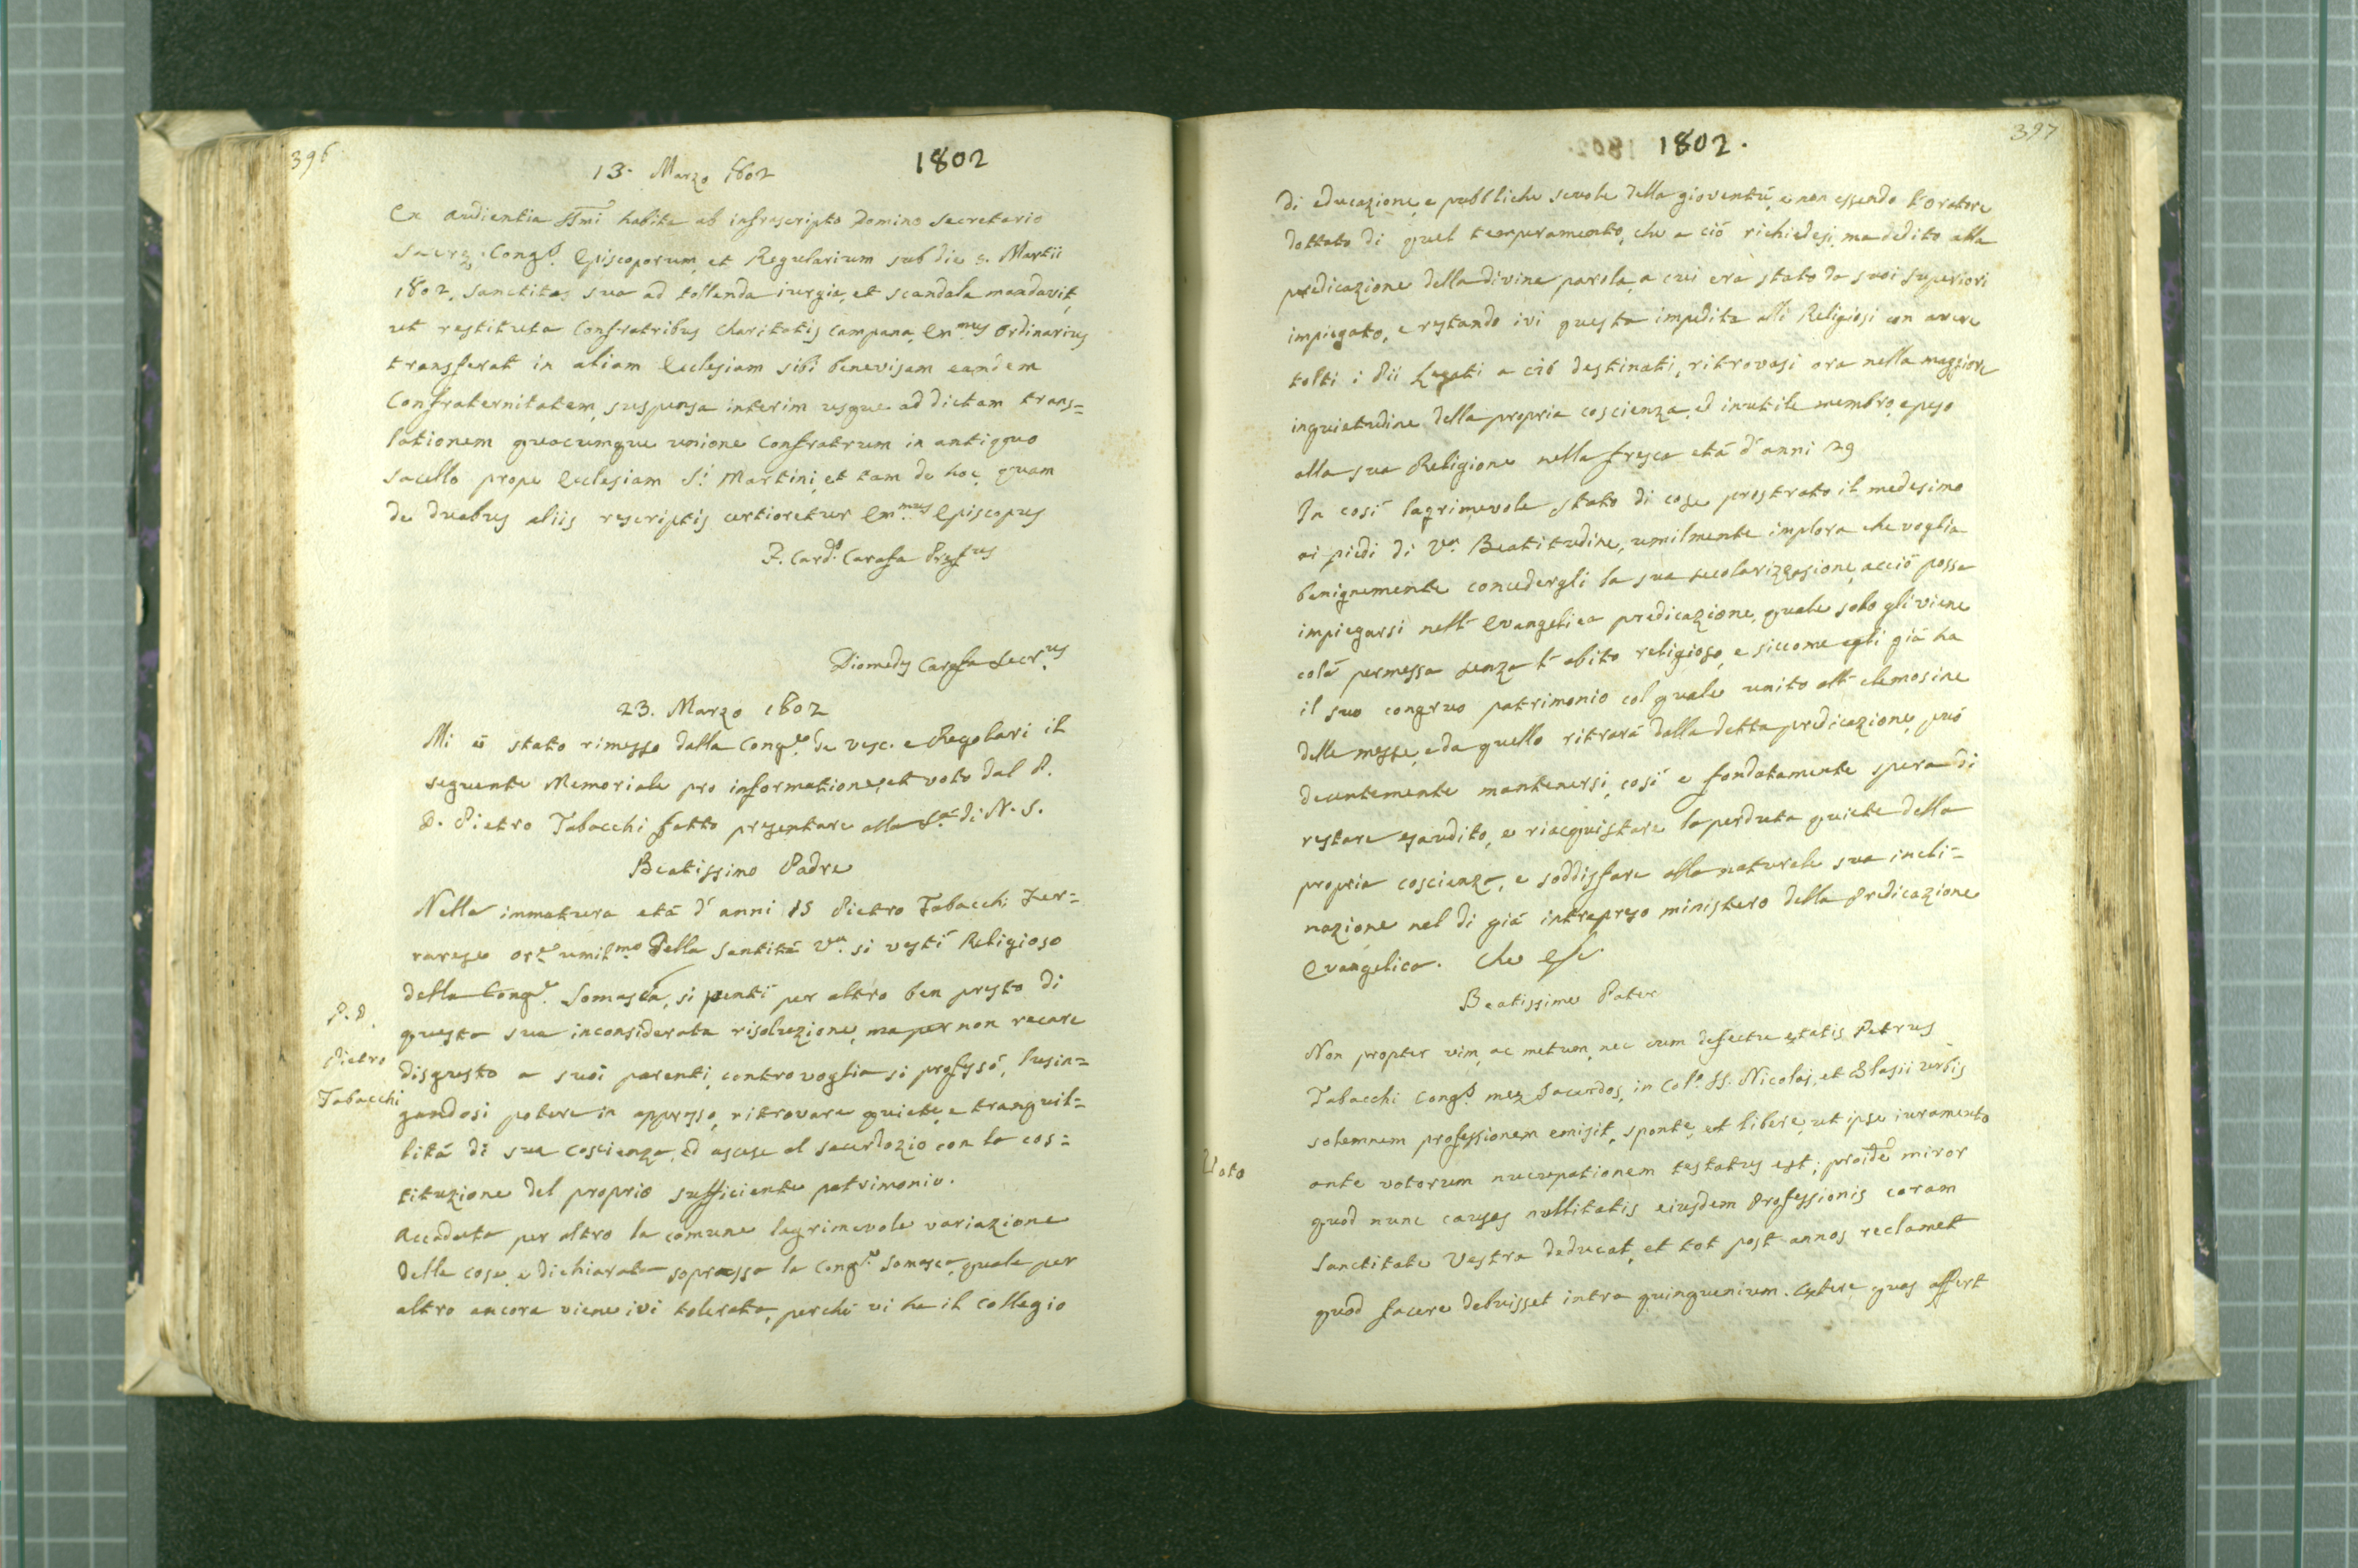 396
13. Marzo 1802
1802
Ex audientia SSmi habita ab infrascripto Domino Secretario
Sacræ Congs. Episcoporum, et Regularium sub die 5. Martii
1802, Sanctitas sua ad tollenda iurgia, et scandala mandavit,
ut restituta Confratribus Charitatis campana, Emmus Ordinarius
transferat in aliam Ecclesiam sibi benevisam eandem
Confraternitatem, suspensa interim usque ad dictam trans=
lationem quacumque unione Confratrum in antiquo
sacello prope Ecclesiam S. Martini, et tam de hoc, quam
de duabus aliis rescriptis certioretur Emmus Episcopus
F. Card. Carafa Præfus
Diomedes Carafa Secrus
23. Marzo 1802
Mi è stato rimesso dalla Conge. de Vesc. e Regolari il
seguente Memoriale pro informatione, et voto dal P.
D. Pietro Tabacchi fatto presentare alla Sà di N. S.
Beatissimo Padre
Nella immatura età d'anni 15 Pietro Tabacchi Fer=
rarese Ore umilmo della Santità Va. si vestì Religioso
P. D.
Pietro
Tabacchi
della Conge. Somasca, si pentì per altro ben presto di
questa sua inconsiderata risoluzione, ma per non recare
disgusto a suoi parenti, contro voglia si professò, lusin=
gandosi potere in appresso, ritrovare quiete, e tranquil=
lità di sua coscienza, ed ascese al sacerdozio con la cos=
tituzione del proprio sufficiente patrimonio.
Accaduta per altro la comune lagrimevole variazione
delle cose, e dichiarata sopressa la Conge. Somasca, quale per
altro ancora viene ivi tolerata, perchè vi ha il collegio
1802.
397
di educazione, e pubbliche scuole della gioventù, e non essendo l'Oratore
dottato di quel temperamento, che a ciò richiedesi, ma dedito alla
predicazione della divina parola, a cui era stato da suoi superiori
impiegato, e restando ivi questa impedita alli Religiosi con avere
tolti i Pii Legati a ciò destinati, ritrovasi ora nella maggiore
inquietudine della propria coscienza, ed inutile membro, e peso
alla sua Religione nella fresca età d'anni 29
In così lagrimevole stato di cose prostrato il medesimo
ai piedi di Va. Beatitudine, umilmente implora che voglia
benignamente concedergli la sua secolarizzazione, acciò possa
impiegarsi nell'Evangelica predicazione, quale solo gli viene
colà permessa senza l'abito religioso, e siccome egli già ha
il suo congruo patrimonio col quale unito all'elemosine
delle messe, e da quello ritrarà dalla detta predicazione, può
decentemente mantenersi, così e fondatamente spera di
restare esaudito, e riacquistare la perduta quiete della
propria coscienza, e soddisfare alla naturale sua incli=
nazione nel di già intrapreso ministero della Predicazione
Evangelica. Che &c.
Beatissime Pater
Non propter vim, ac metum, nec cum defectu ætatis Petrus
Tabacchi Congs. meæ Sacerdos, in Colo. SS. Nicolai, et Blasii Urbis
solemnem professionem emisit, sponte, et libere, ut ipse iuramento
Voto
ante votorum nuncupationem testatus est; proinde miror
quod nunc causas nullitatis eiusdem Professionis coram
Sanctitate Vestra deducat, et tot post annos reclamet
quod facere debuisset intra quinquenium. Cætere quas affert